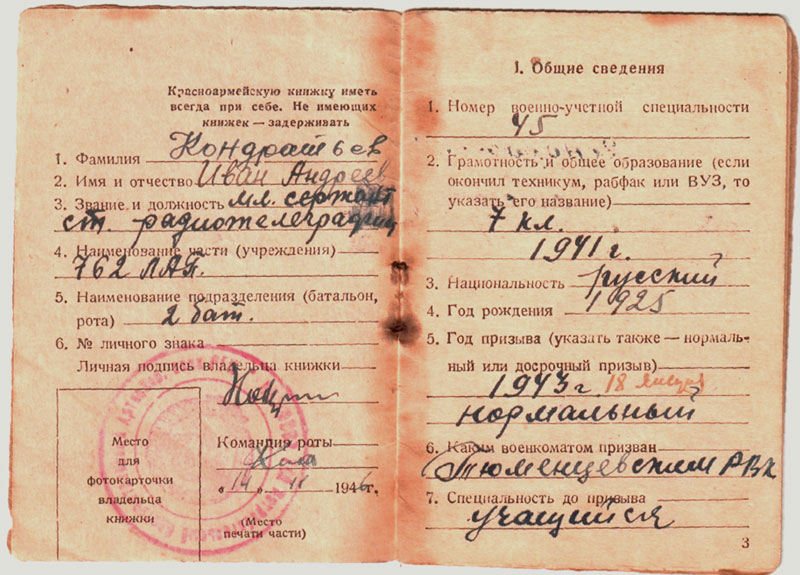 Красноармейскую книжку иметь
всегда при себе. Не имеющих
книжек — задерживать
1. Фамилия Кондратьев
2. Имя и отчество Иван Андреев
3. Звание и должность мл. сержант
ст. радиотелеграфист
4. Наименование части (учреждения)
762 ЛАП.
5. Наименование подразделения (батальон,
рота) 2 бат.
6. № личного знака
Личная подпись владельца книжки
Место
для
фотокарточки
владельца
книжки
Командир роты
„14„ 1946г.
(Место
печати части)
I. Общие сведения
1. Номер военно-учетной специальности
45
2. Грамотность и общее образование (если
окончил техникум, рабфак или ВУЗ, то
указать его название)
7 кл.
1941 г.
3. Национальность русский
4. Год рождения 1925
5. Год призыва (указать также — нормаль-
ный или досрочный призыв)
1943 г. 18 января
нормальный
6. Каким военкоматом призван
Тюменцевским РВК
7. Специальность до призыва
учащийся
3